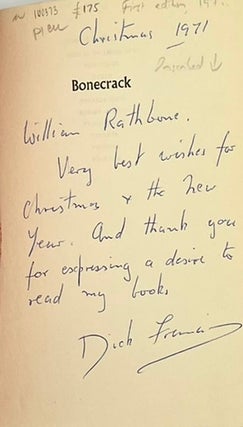 £175 First edition, 197
Christmas 1971
Inscribed ↓
Bonecrack
William Rathbone.
Very best wishes for
Christmas & the New
Year. And thank you
for expressing a desire to
read my books
Dick Francis